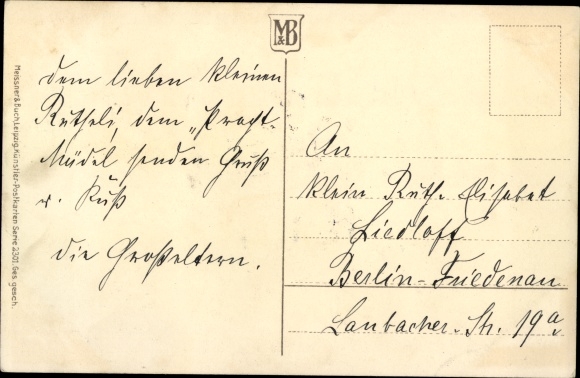 M&B
Meissner & Buch, Leipzig, Künstler-Postkarten Serie 2301. Ges. gesch.
dem lieben kleinen
Rutheli, dem "Pracht-
Mädel senden Gruß
u. Kuß
die Großeltern.
An
klein Ruth-Elisabet
Liedloff
Berlin-Friedenau
Laubacher-Str. 19a